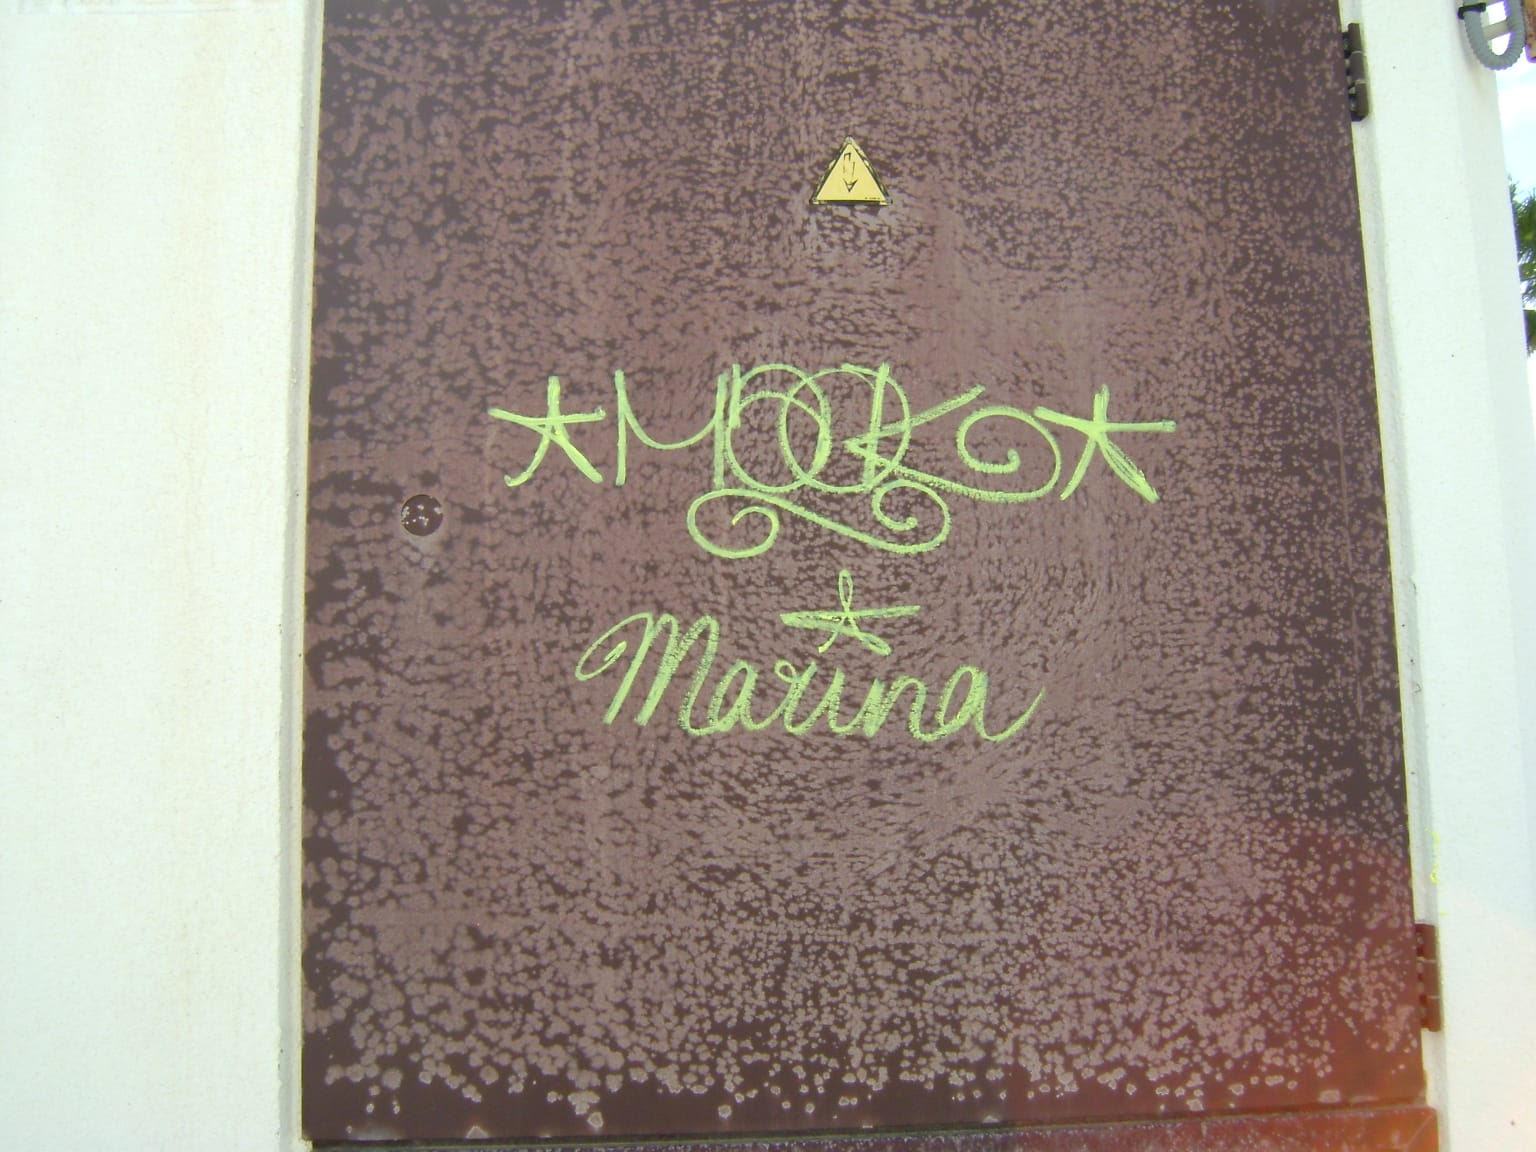 *MOOK*
Marina